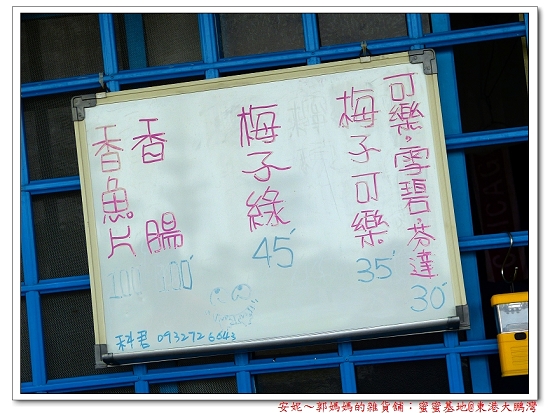 可樂,雪碧,芬達 30
梅子可樂 35
梅子綠 45
香腸 100
香魚片 100
科君 0932726643
安妮～郭媽媽的雜貨舖：蜜蜜基地@東港大鵬灣